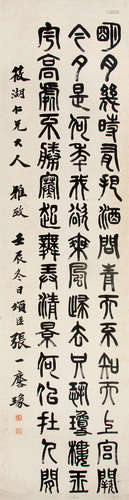 明月幾時有把酒問青天不知天上宮闕
今夕是何年我欲乘風歸去只恐瓊樓玉
宇高處不勝寒起舞弄清景何佀在人間
筱湖仁兄大人 雅政 壬辰冬日頌臣張一麐瑑